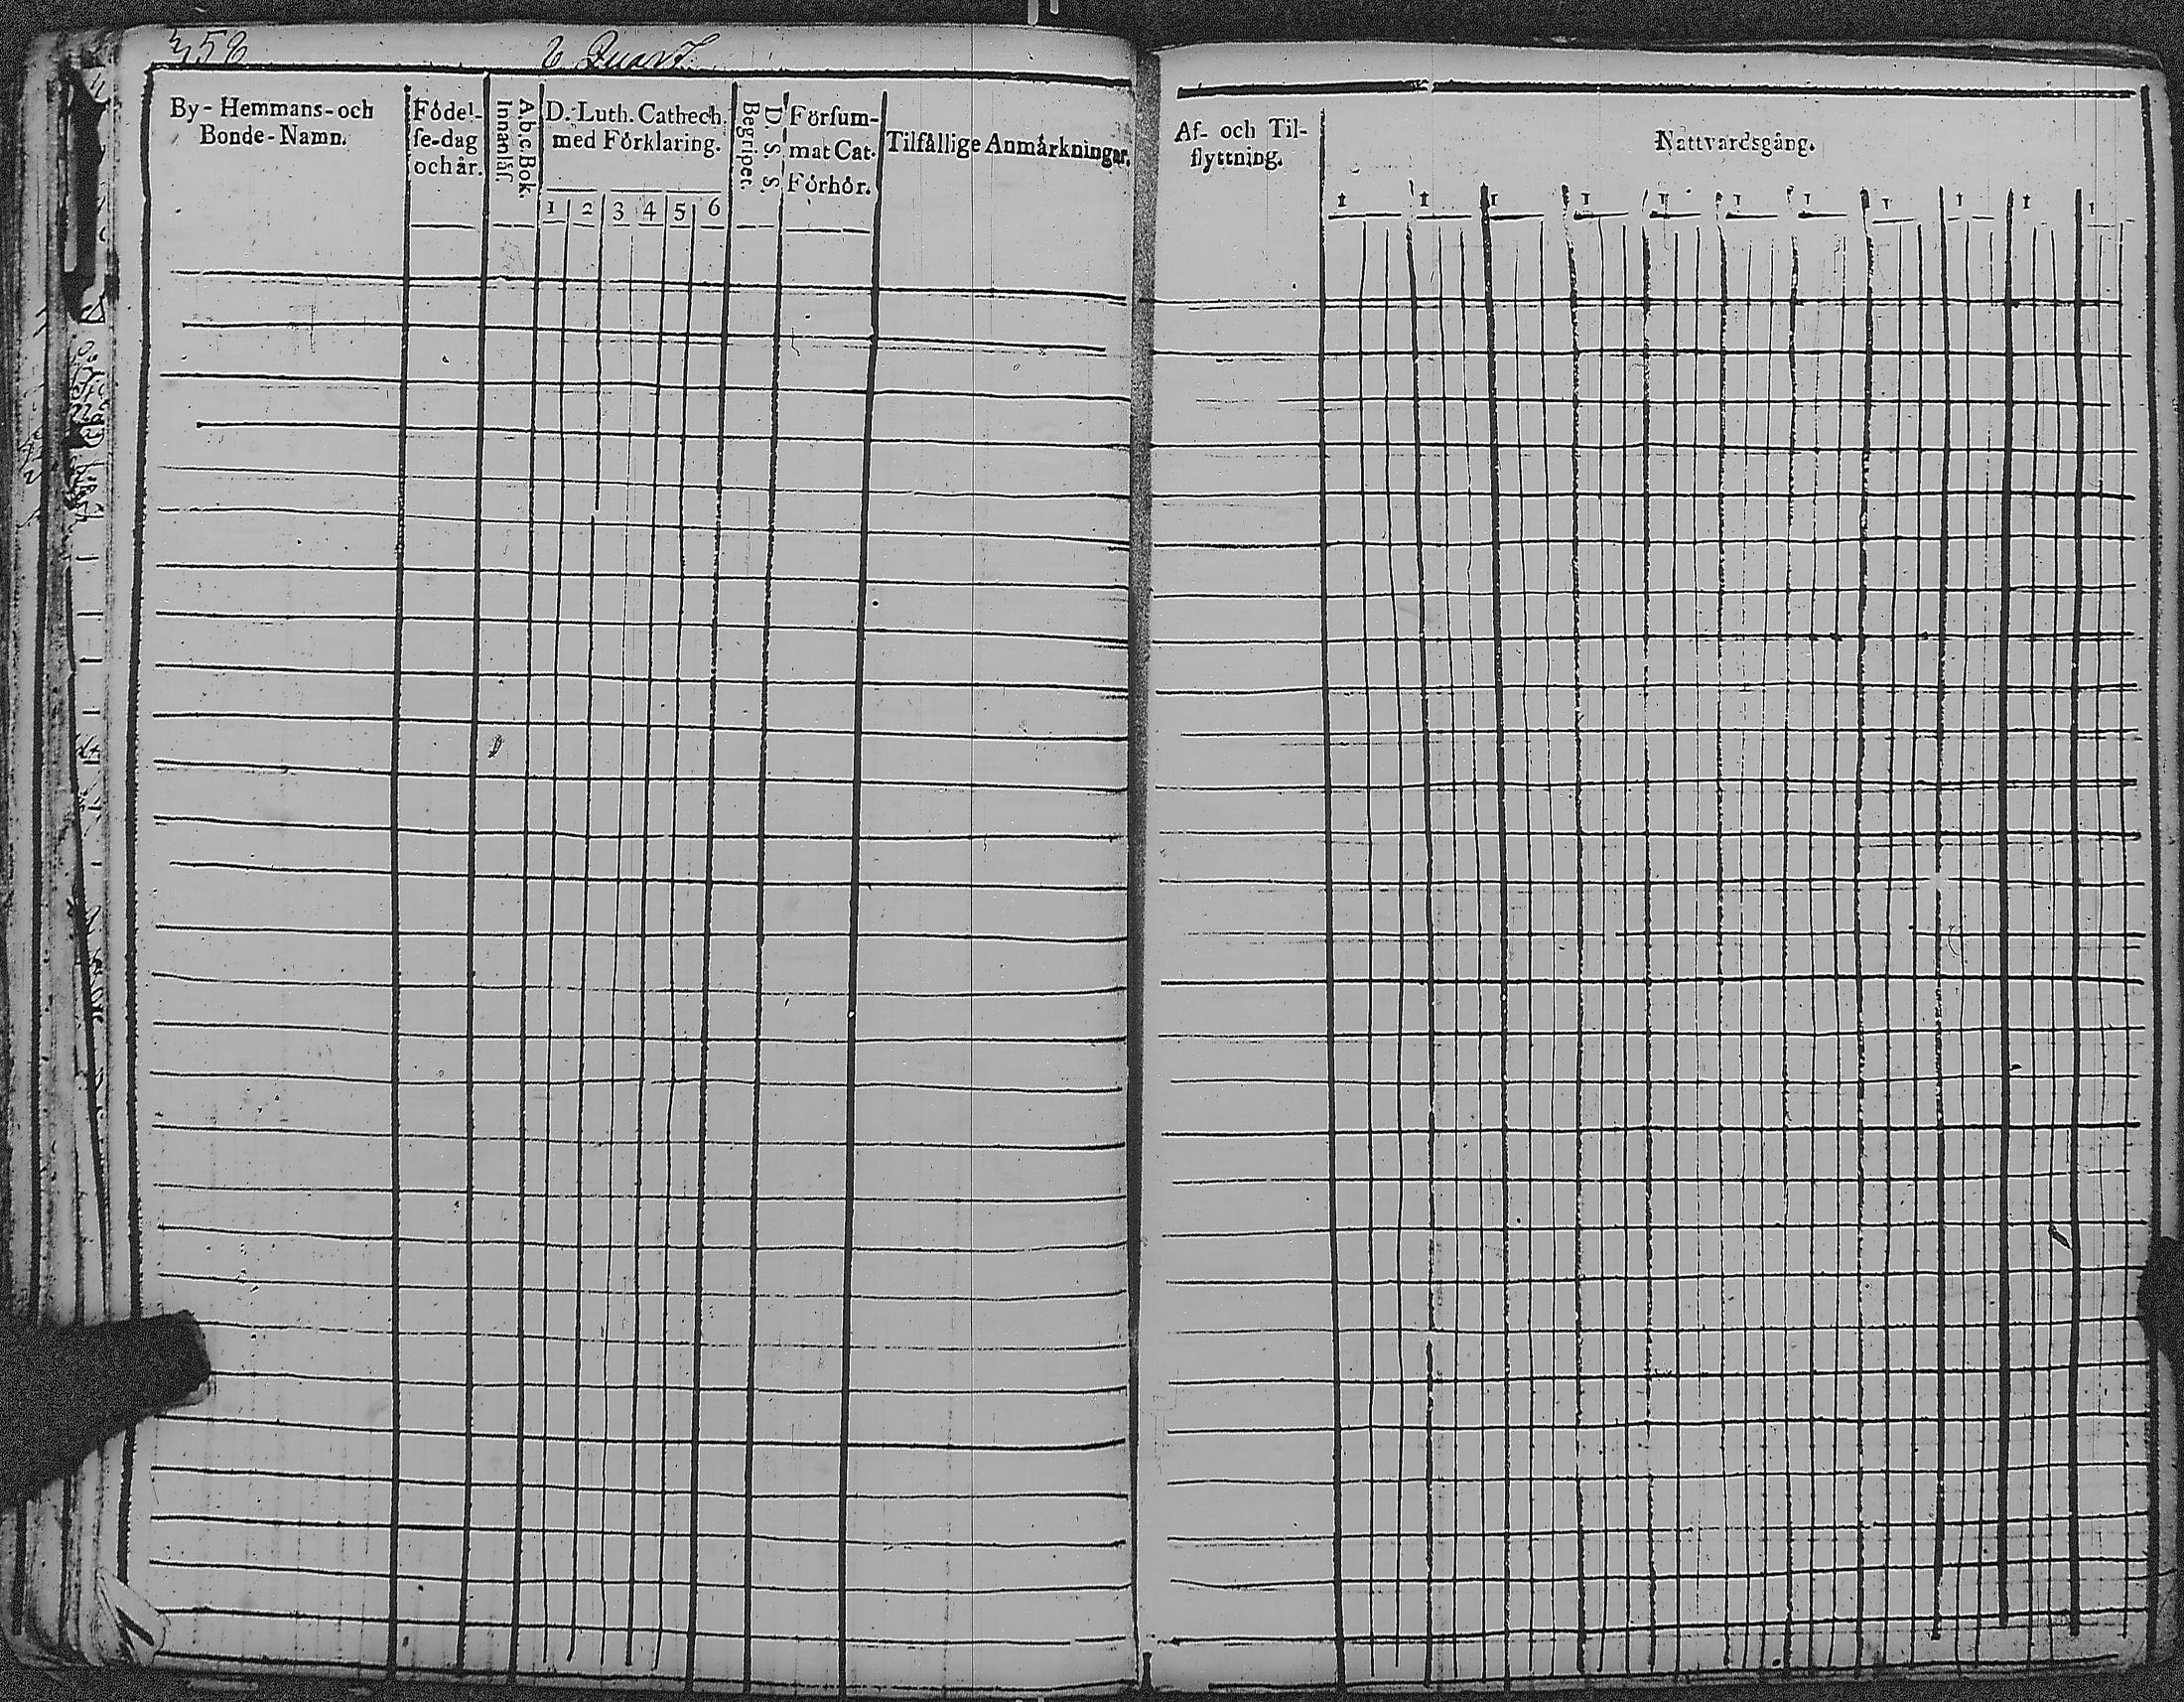 358
By-Hemmans-och
Bonde-Namn.
Födel-
se-dag
och år.
Ab.c.Bok.
Innanläs.
D. Luth. Cathech.
med Förklaring.
1 2 3 4 5 6
D. S. S.
Begriper.
Försum-
mat Cat.
Förhör.
Tilfällige Anmärkningar.
Af- och Til-
flyttning.
Nattvardsgång.
1 1 1 1 1 1 1 1 1 1 1